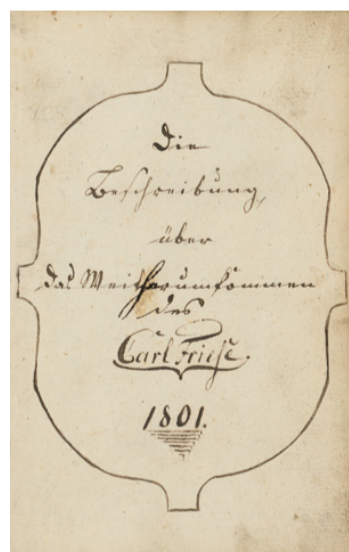 Die
Beschreibung,
über
das Weitherumkommen
des
Carl Friese.
1801.